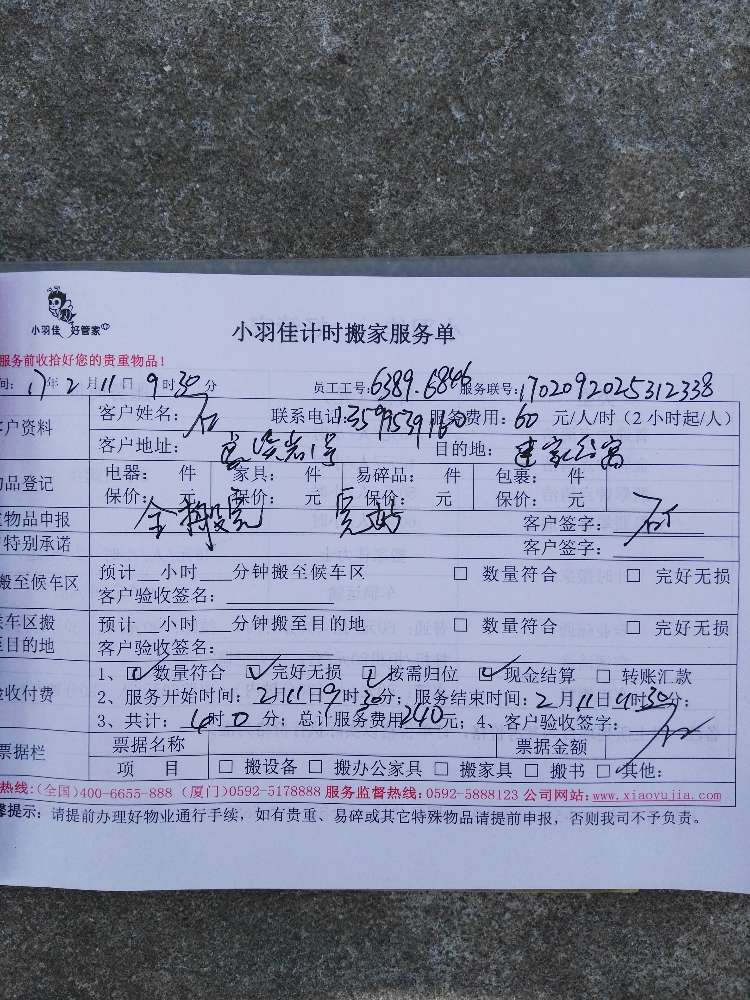 小羽佳 好管家
小羽佳计时搬家服务单
服务前收拾好您的贵重物品!
间: 17年 2月 11日 9时 30分 员工工号: 6389.6846 服务联号: 1702092025312338
户资料 客户姓名: 石 联系电话: 13599539160 服务费用: 60 元/人/时 (2小时起/人)
客户地址: 岩1号 目的地: 建家公寓
品登记 电器: 件 家具: 件 易碎品: 件 包裹: 件
保价: 元 保价: 元 保价: 元 保价: 元
物品申报 全搬完 完好 客户签字: 石
特别承诺 客户签字:
搬至候车区 预计__小时___分钟搬至候车区 □ 数量符合 □ 完好无损
客户验收签名:
车区搬 预计__小时___分钟搬至目的地 □ 数量符合 □ 完好无损
至目的地 客户验收签名:
验收付费 1、☑数量符合 ☑完好无损 ☑按需归位 ☑现金结算 □ 转账汇款
2、服务开始时间: 2月11日9时30分; 服务结束时间: 2月11日11时30分;
3、共计: 时0分; 总计服务费用240元; 4、客户验收签字: 石
票据栏 票据名称 票据金额
项 目 □ 搬设备 □ 搬办公家具 □ 搬家具 □ 搬书 □ 其他:
热线:(全国)400-6655-888 (厦门)0592-5178888 服务监督热线:0592-5888123 公司网站:www.xiaoyujia.com
馨提示: 请提前办理好物业通行手续, 如有贵重、易碎或其它特殊物品请提前申报, 否则我司不予负责。